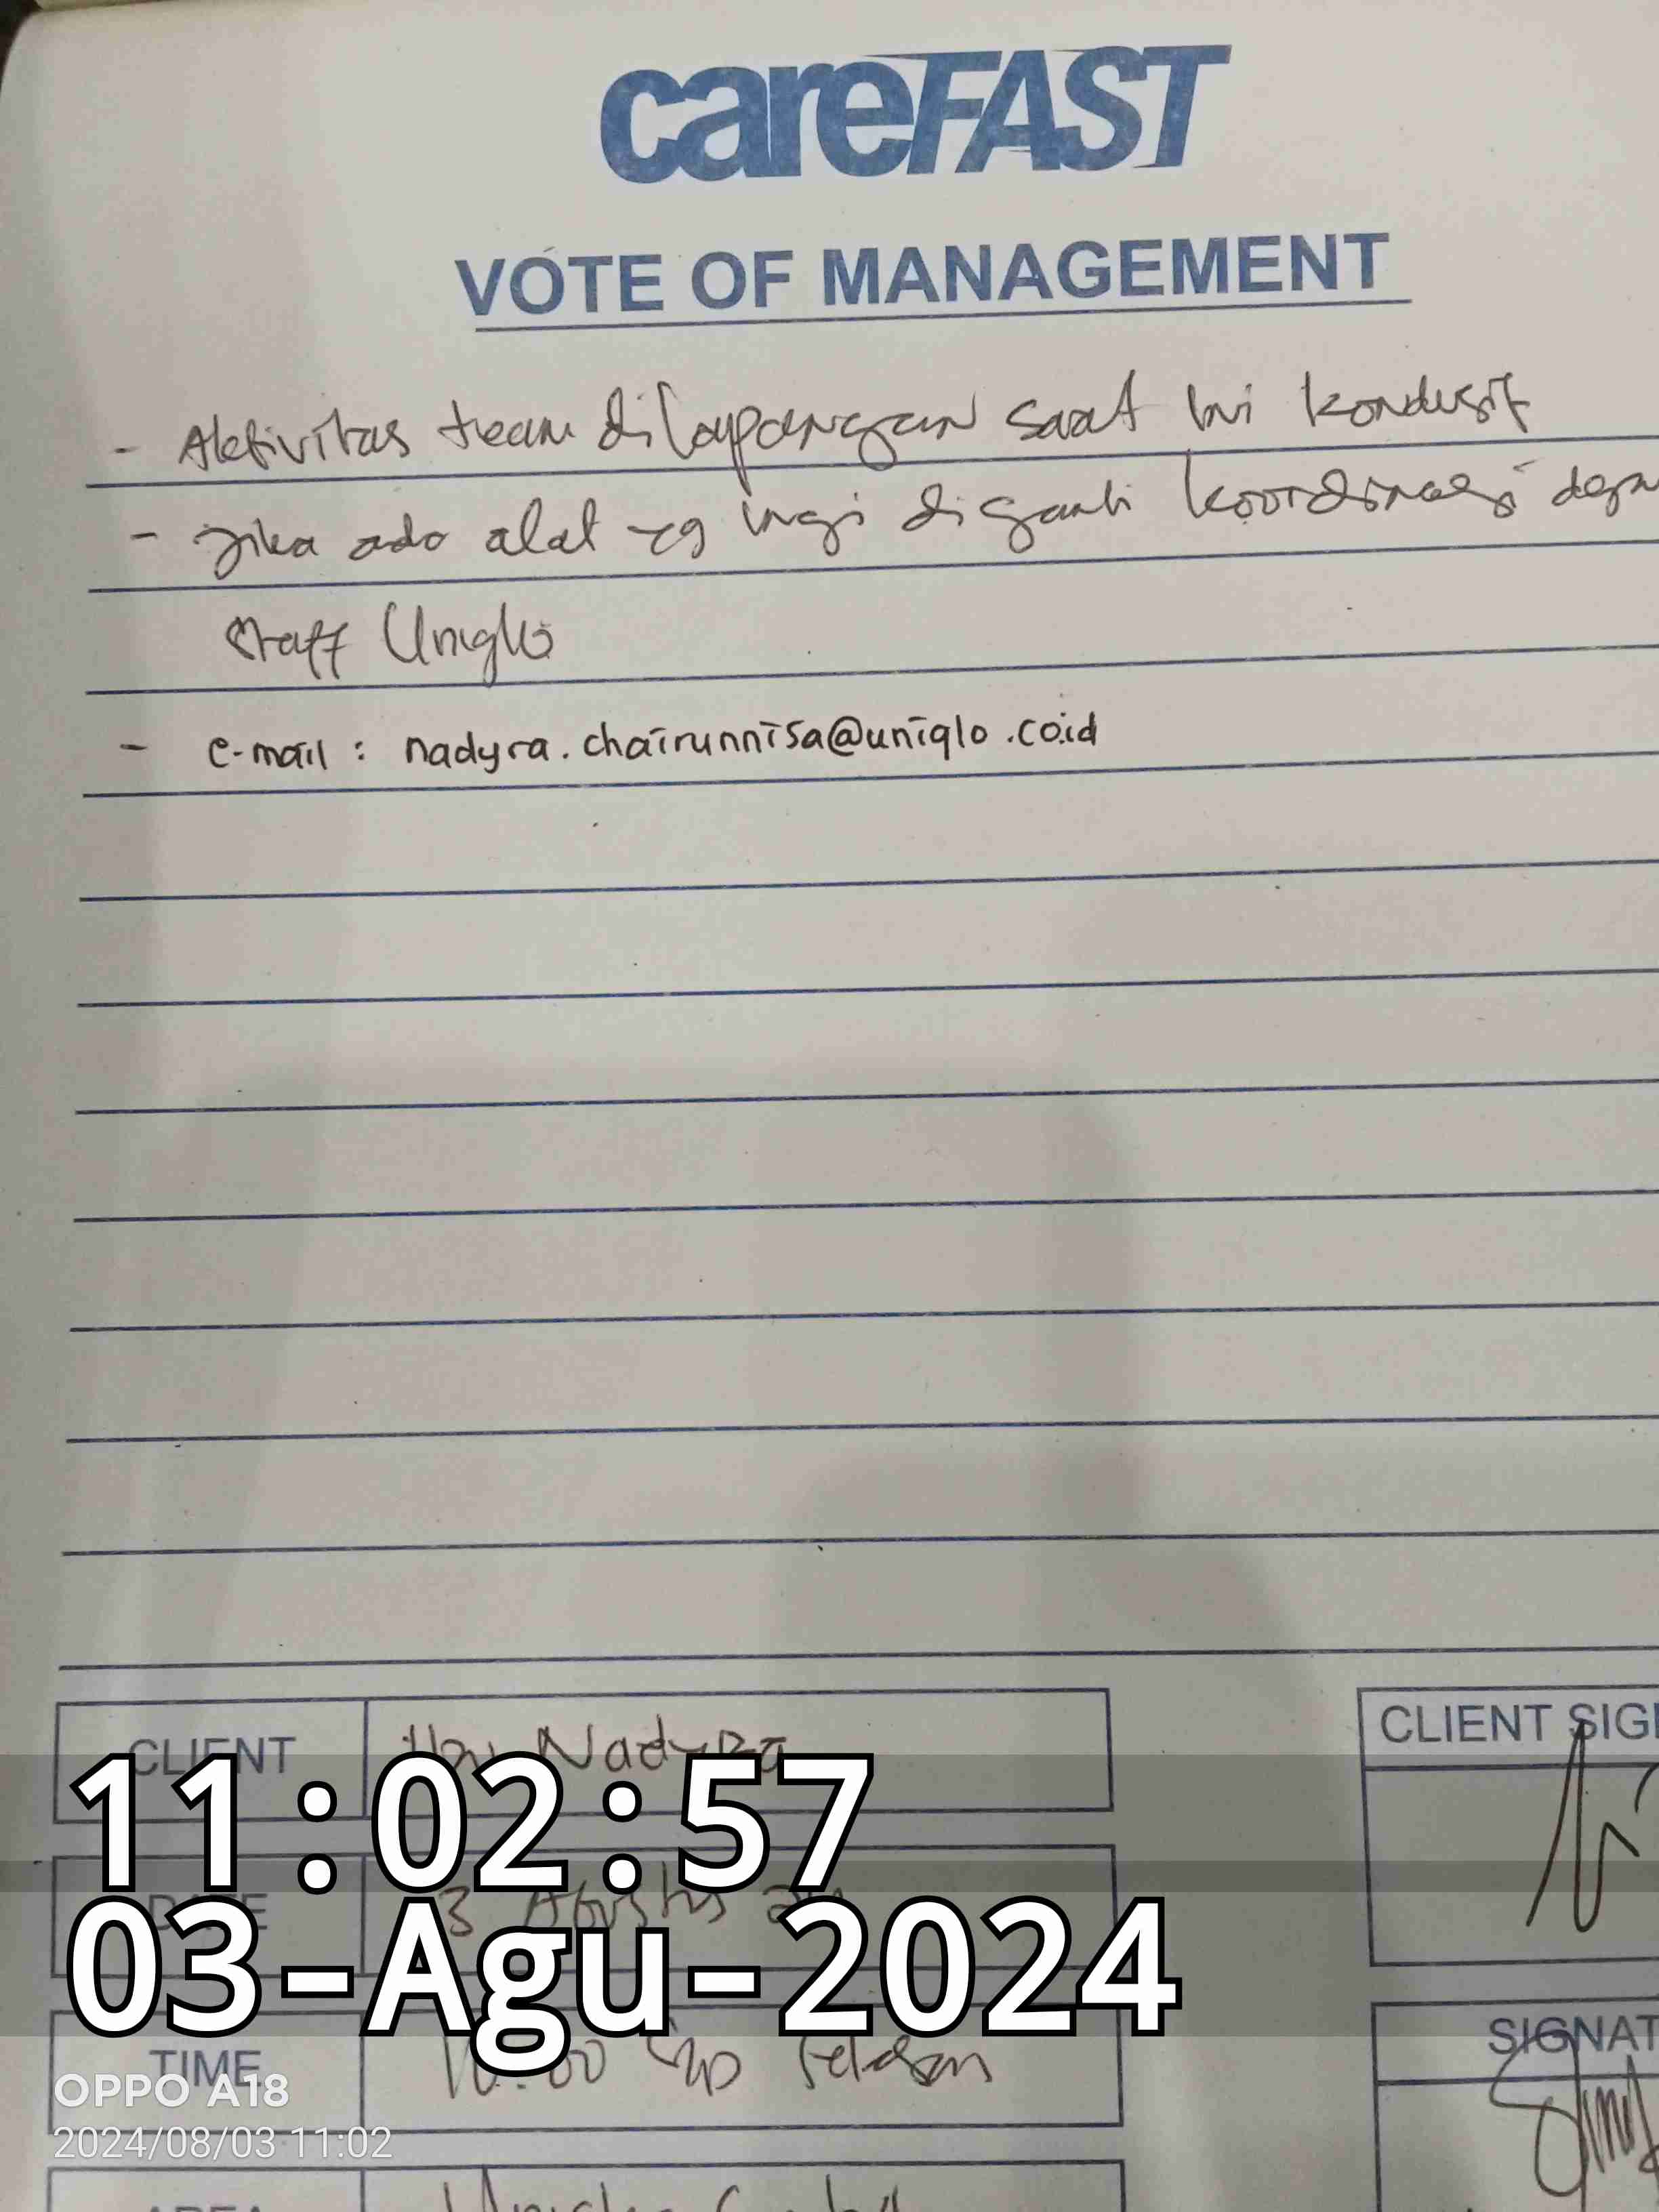 careFAST
VOTE OF MANAGEMENT
- Aktivitas team dilapangan saat ini kondusif
- jika ada alat yg ingi diganti koordinasi dgn
staff Uniqlo
- e-mail : nadyra.chairunnisa@uniqlo.co.id
CLIENT Nadyra
CLIENT SIG
11:02:57
DATE 3 Agustus
03-Agu-2024
TIME 10:00 s/d selesai
SIGNAT
OPPO A18
2024/08/03 11:02
AREA Uniqlo